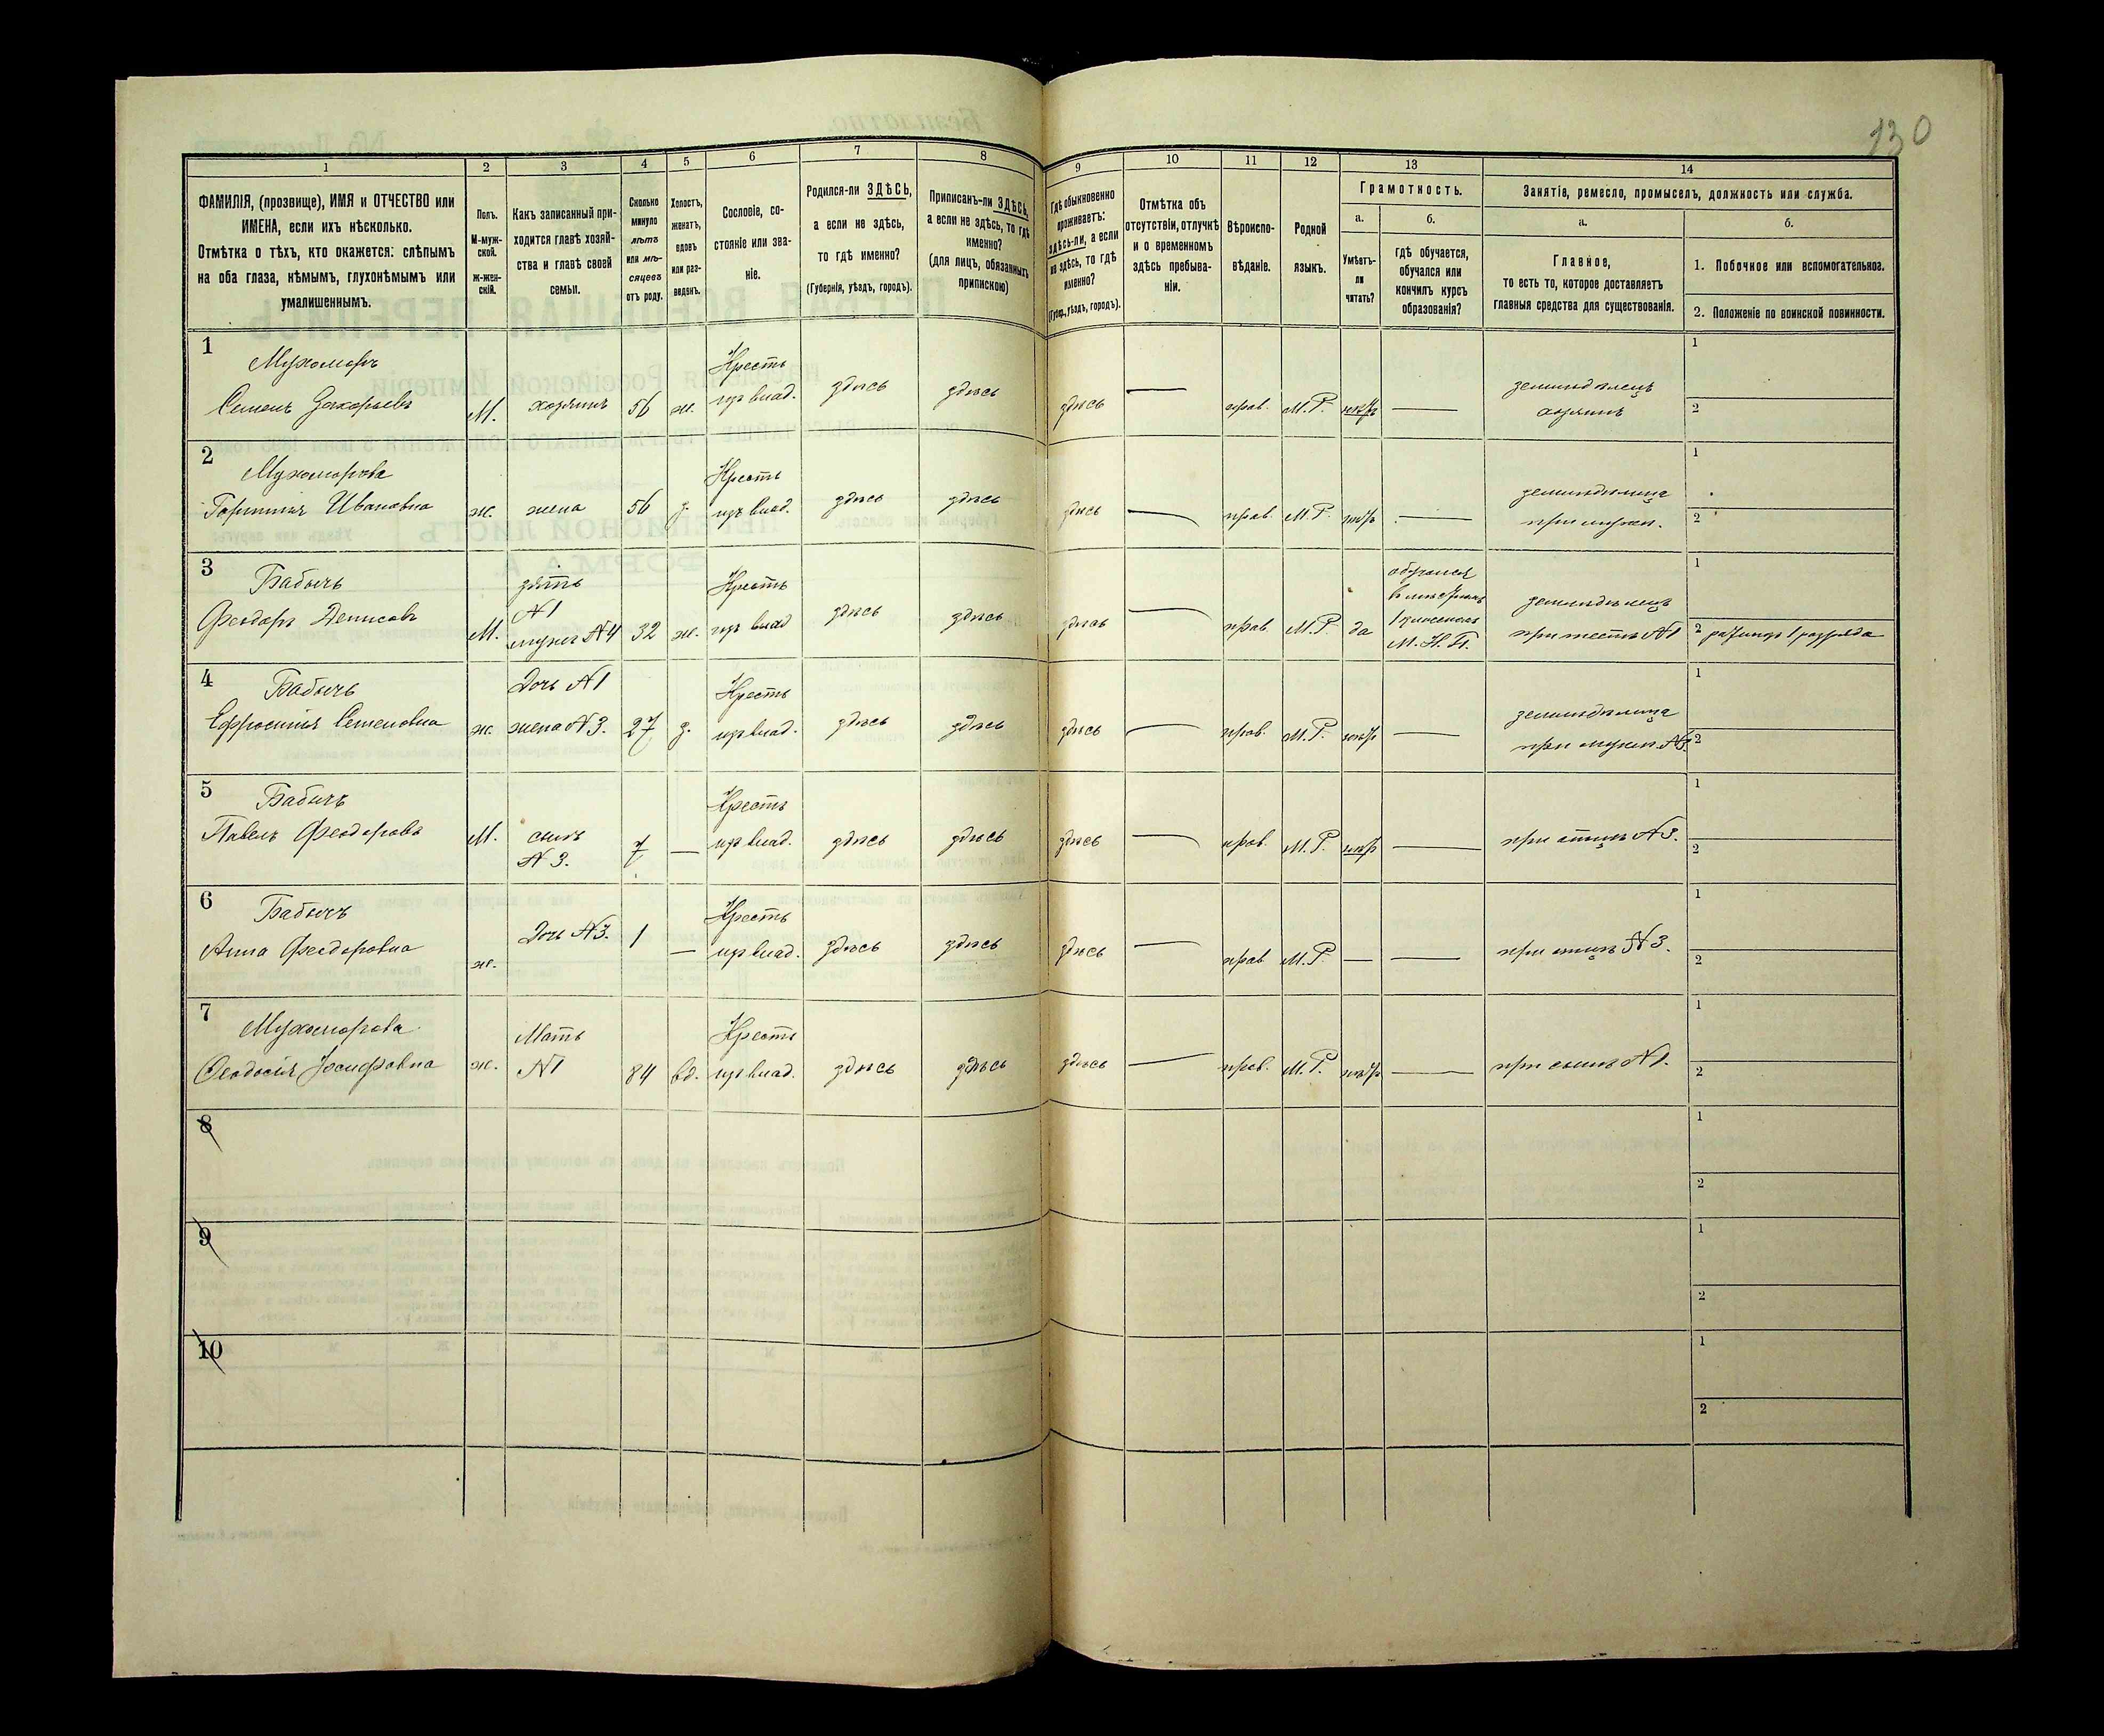 130
1
2
3
4
5
6
7
8
9
10
11
12
13
14
ФАМИЛІЯ, (прозвище), ИМЯ и ОТЧЕСТВО или
ИМЕНА, если ихъ нѣсколько.
Отмѣтка о тѣхъ, кто окажется: слѣпымъ
на оба глаза, нѣмымъ, глухонѣмымъ или
умалишеннымъ.
Полъ.
М-муж-
ской.
ж-жен-
скій.
Какъ записанный при-
ходится главѣ хозяй-
ства и главѣ своей
семьи.
Сколько
минуло
лѣтъ
или мѣ-
сяцевъ
отъ роду.
Холостъ,
женатъ,
вдовъ
или раз-
веденъ.
Сословіе, со-
стояніе или зва-
ніе.
Родился-ли ЗДѢСЬ,
а если не здѣсь,
то гдѣ именно?
(Губернія, уѣздъ, городъ).
Приписанъ-ли ЗДѢСЬ,
а если не здѣсь, то гдѣ
именно?
(для лицъ, обязанныхъ
припискою)
Гдѣ обыкновенно
проживаетъ:
здѣсь-ли, а если
не здѣсь, то гдѣ
именно?
(Губер., уѣздъ, городъ).
Отмѣтка объ
отсутствіи, отлучкѣ
и о временномъ
здѣсь пребыва-
ніи.
Вѣроиспо-
вѣданіе.
Родной
языкъ.
Грамотность.
а.
б.
Умѣетъ-
ли
читать?
Гдѣ обучается,
обучался или
кончилъ курсъ
образованія?
Занятіе, ремесло, промыселъ, должность или служба.
а.
б.
Главное,
то есть то, которое доставляетъ
главныя средства для существованія.
1. Побочное или вспомогательное.
2. Положеніе по воинской повинности.
1
Мухоморъ
Семенъ Захарьевъ
М.
хозяинъ
56
ж.
Крестъ
изъ влад.
здѣсь
здѣсь
здѣсь
—
прав.
М.Р.
—
земледѣлецъ
хозяинъ
1
2
2
Мухоморова
Горпина Ивановна
ж.
жена
56
з.
Крестъ
изъ влад.
здѣсь
здѣсь
здѣсь
—
прав.
М.Р.
—
земледѣлица
при мужѣ.
1
2
3
Бабычъ
Феодоръ Денисовъ
М.
зять
N1
мужъ N4
32
ж.
Крестъ
изъ влад
здѣсь
здѣсь
здѣсь
—
прав
М.Р.
да
М.Н.П.
земледѣлецъ
при тестѣ N1
1
2 ратникъ 1 разряда
4
Бабычъ
Ефросинія Семеновна
ж.
Дочь N1
жена N3.
27
з.
Крестъ
изъ влад.
здѣсь
здѣсь
здѣсь
—
прав.
М.Р.
—
земледѣлица
при мужѣ N3.
1
2
5
Бабычъ
Павелъ Феодоровъ
М.
сынъ
N3.
7
—
Крестъ
изъ влад.
здѣсь
здѣсь
здѣсь
—
прав.
М.Р.
—
при отцѣ N3.
1
2
6
Бабычъ
Анна Феодоровна
ж.
Дочь N3.
1
—
Крестъ
изъ влад.
здѣсь
здѣсь
здѣсь
—
прав
М.Р.
—
—
при отцѣ N3.
1
2
7
Мухоморова
Феодосія Іосифовна
ж.
Мать
N1
84
вд.
Крестъ
изъ влад.
здѣсь
здѣсь
здѣсь
—
прав.
М.Р.
—
при сынѣ N1.
1
2
8
1
2
9
1
2
10
1
2